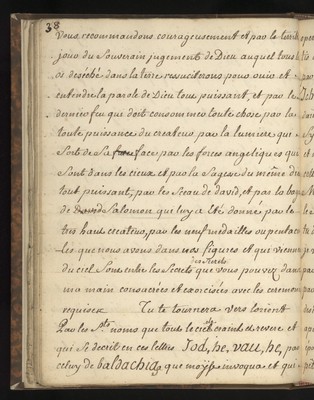 38
vous recommandons courageusement et par le terrible
jour du Souverain jugement de Dieu auquel tous les
os deséché dans la terre ressusciterons pour ouir et
entendre la parole de Dieu tout puissant, et par le
dernier feu que doit consommer toute chose par la
toute puissance du createur, par la lumiere qui
Sorte de Sa face par les forces angeliques qui
Sont dans les cieux et par la Sagesse du même dieu
tout puissant, par le Sceau de david, et par la bague
de Salomon qui luy a été donné par le
tres haut createur, par les neuf medailles ou pentac-
les que nous avons dans nos figures et qui vienne
du ciel Sous entre les Secrets que vous pouvez dans
ma main consacrées et exorcisées avec les ceremonies
requises Tu te tournera vers lorient
Par les Sts noms que toute le ciel craint et revere et
qui Se decrit en ces lettres Jod, he, vau, he, par
celuy de baldachia que moÿse invoqua et qui